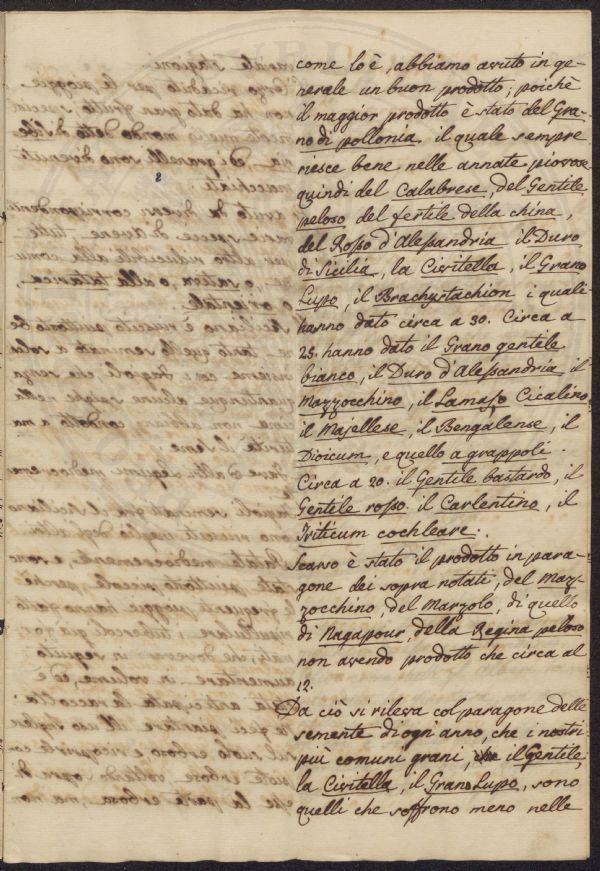 come lo è, abbiamo avuto in ge-
nerale un buon prodotto; poichè
il maggior prodotto è stato del Gra-
no di pollonia il quale sempre
riesce bene nelle annate piovose
quindi del Calabrese, del Gentile
peloso del fertile della china,
del Rosso d'Alessandria il Duro
di Sicilia, la Civitella, il Grano
Lupo, il Brachystachion i quali
hanno dato circa a 30. Circa a
25. hanno dato il Grano gentile
bianco, il Duro d'Alessandria, il
Mazzocchino, il Cicalino
il Majellese, il Bengalense, il
Dioicum, e quello a grappoli.
Circa a 20. il Gentile bastardo, il
Gentile rosso. il Carlentino, il
Triticum cochleare.
Scarso è stato il prodotto in para-
gone dei sopra notati, del Maz-
zocchino, del Marzolo, di quello
di Nagapour, della Regina peloso
non avendo prodotto che circa al
12.
Da ciò si rileva col paragone delle
semente di ogn anno, che i nostri
più comuni grani, il gentile,
la Civitella, il Grano Lupo, sono
quelli che soffrono meno nelle
2